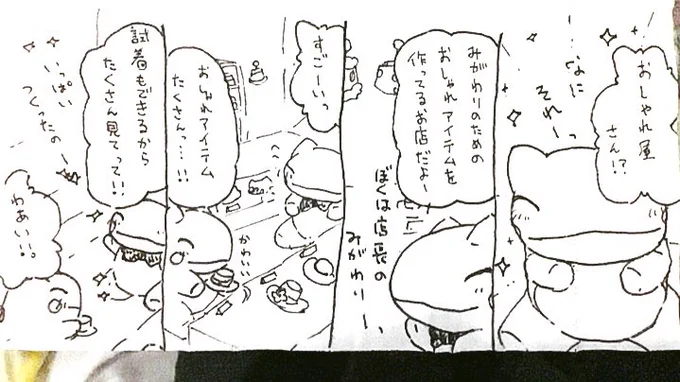 おしゃれ屋
さん!?
…なに
それーっ
みがわりのための
おしゃれアイテムを
作ってるお店だよー
ぼくは店長の
みがわりーっ
すごーいっ
おしゃれアイテム
たくさんっ…!!
かわいい
試着もできるから
たくさん見てって!!
いっぱい
つくったのー
わあい!!